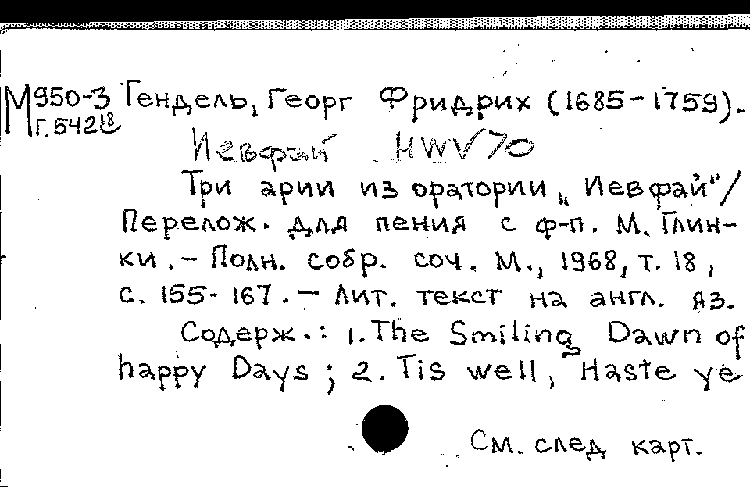 М950-3 Гендель, Георг Фридрих (1685-1759).
Г.542 18
Иевфай HWV 70
Три арии из оратории „Иевфай"/
Перелож. для пения с ф-п. М. Глин-
ки. - Полн. собр. соч. М., 1968, т. 18,
с. 155-167. - Лит. текст на англ. яз.
Содерж.: 1. The Smiling Dawn of
happy Days; 2. Tis well, Haste ye
См. след карт.